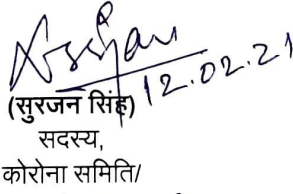 12.02.21
(सुरजन सिंह)
सदस्य,
कोरोना समिति/